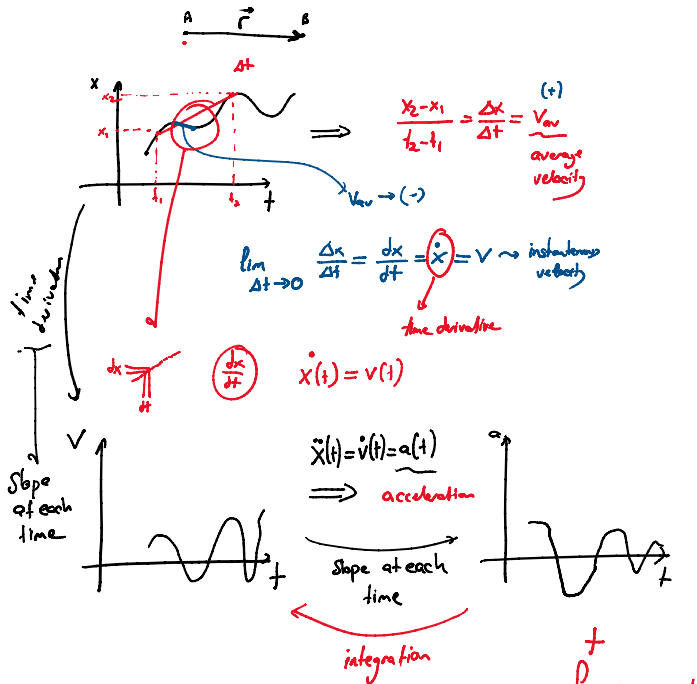 A r⃗ B
Δt
x
x₂
x₁
t₁ t₂ t
⇒ (x₂-x₁)/(t₂-t₁) = Δx/Δt = Vav (+)
average
velocity
Vav → (-)
lim Δt→0 Δx/Δt = dx/dt = ẋ = V ⤳ instantaneous
velocity
time derivative
time
dx
dt
dx/dt
ẋ(t) = v(t)
V
t
Slope
at each
time
ẍ(t) = v̇(t) = a(t)
⇒ acceleration
Slope at each
time
integration
a
t
t